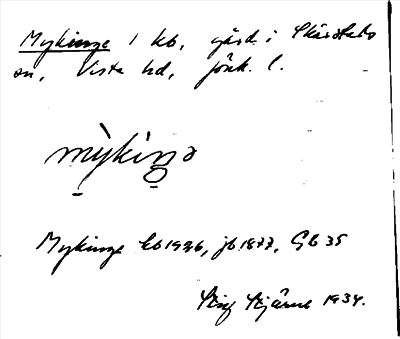 Mykinge 1 kb, gård i Skärstads
sn, Vista hd, Jönk. l.
mỳkìŋə
Mykinge kb 1936, jb 1877, Gb 35
Stig Stjärne 1934.